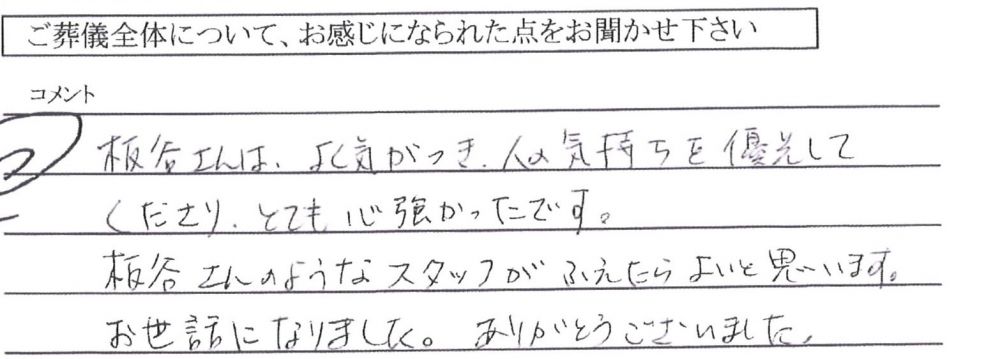 ご葬儀全体について、お感じになられた点をお聞かせ下さい
コメント
板谷さんは、よく気がつき、人の気持ちを優先して
くださり、とても心強かったです。
板谷さんのようなスタッフがふえたらよいと思います。
お世話になりました。ありがとうございました。